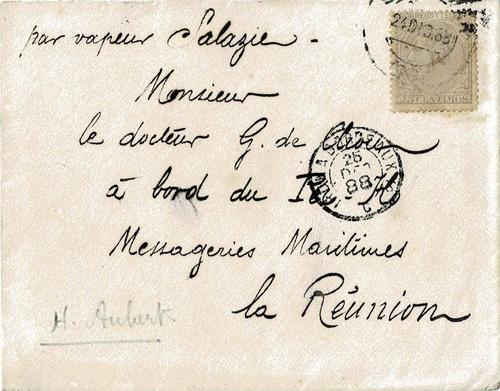 par vapeur Salazie -
Monsieur
le docteur G. de
à bord du
Messageries Maritimes
la Réunion
H. Aubert
CORREOS Y TEL
25 CENTIMOS
24 DIC 88
BORDEAUX
26
DEC
88